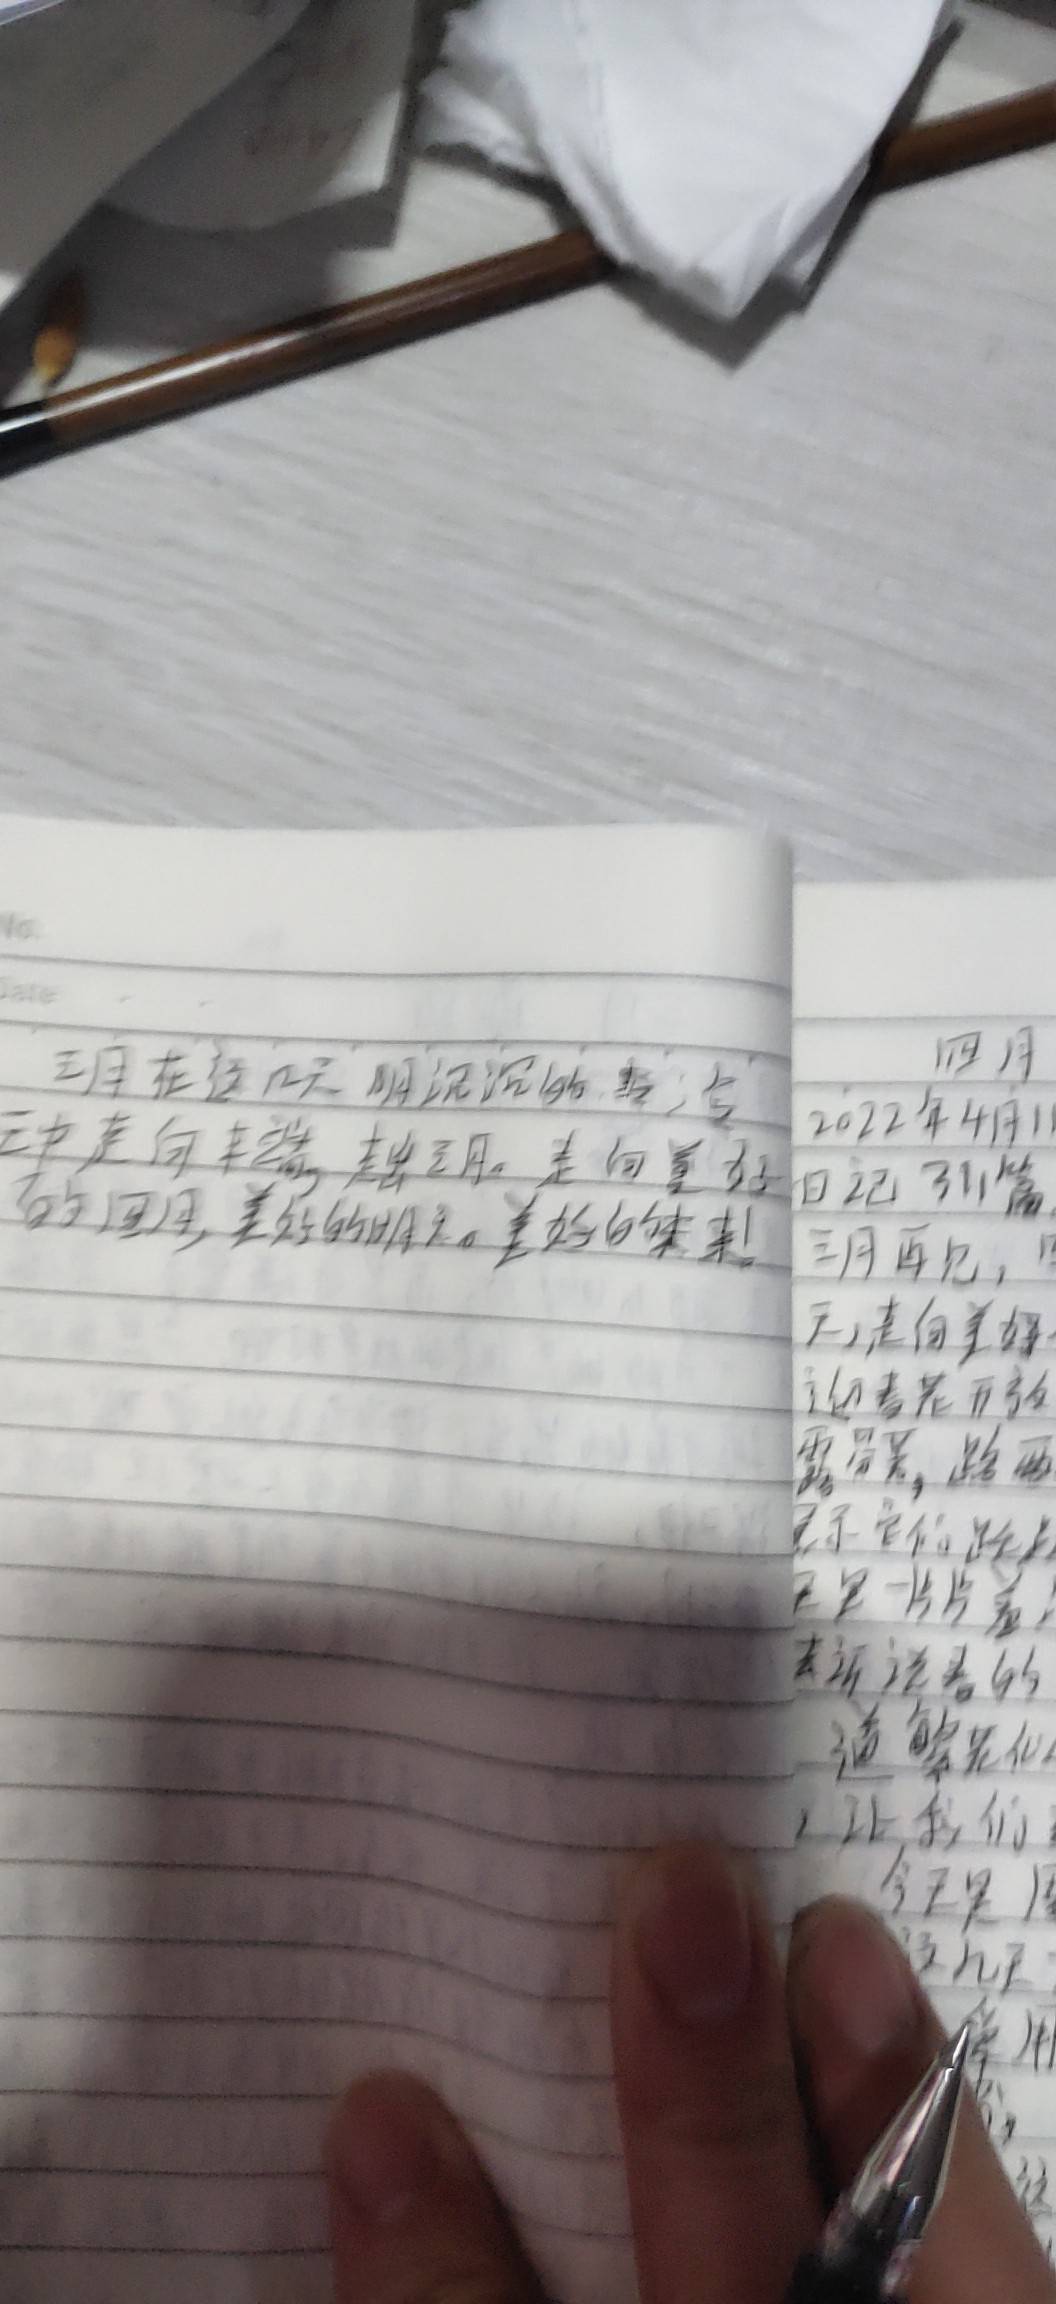 No.
Date
三月在这几天阴沉沉的
中走向末端,走出三月。走向美好
的四月,美好的明天。美好的未来!
四月
2022年4月1
日记311篇
三月再见,
天,走向美好
迎春花开放
露骨,路两
显示它们跃
一片片
去诉说春的
道繁花似
,让我们
今天是周
这几天